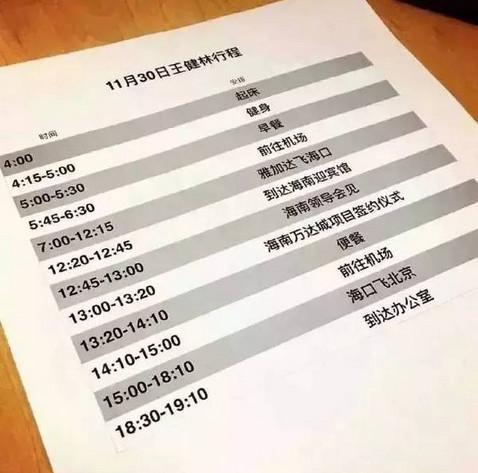 11月30日王健林行程
时间 安排
4:00 起床
4:15-5:00 健身
5:00-5:30 早餐
5:45-6:30 前往机场
7:00-12:15 雅加达飞海口
12:20-12:45 到达海南迎宾馆
12:45-13:00 海南领导会见
13:00-13:20 海南万达城项目签约仪式
13:20-14:10 便餐
14:10-15:00 前往机场
15:00-18:10 海口飞北京
18:30-19:10 到达办公室